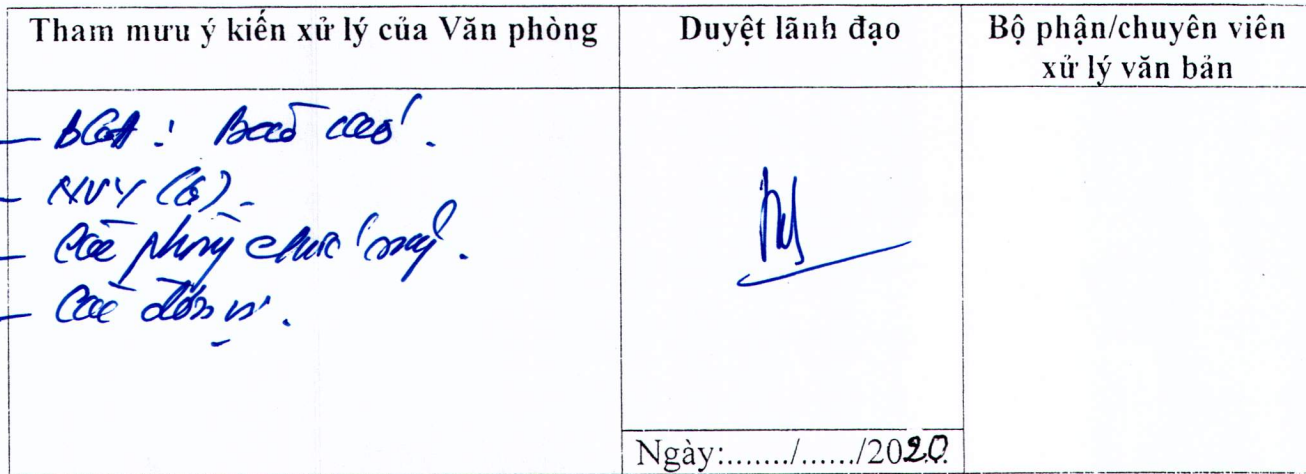 Tham mưu ý kiến xử lý của Văn phòng
Duyệt lãnh đạo
Bộ phận/chuyên viên
xử lý văn bản
- BGĐ: Báo cáo.
- NVY (6).
- Các phòng chức năng.
- Các đơn vị.
Ngày:....../....../2020